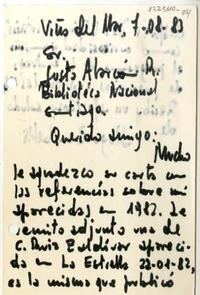 Viña del Mar, 7-08-83
Sr.
Justo Alarcón R.
Biblioteca Nacional
Santiago.
Querido amigo:
Mucho
le agradezco su carta con
las referencias sobre mí
aparecidas en 1982. Le
remito adjunto una de
C. Ruiz Zaldívar apareci-
da en La Estrella 22-01-82,
es la misma que publicó